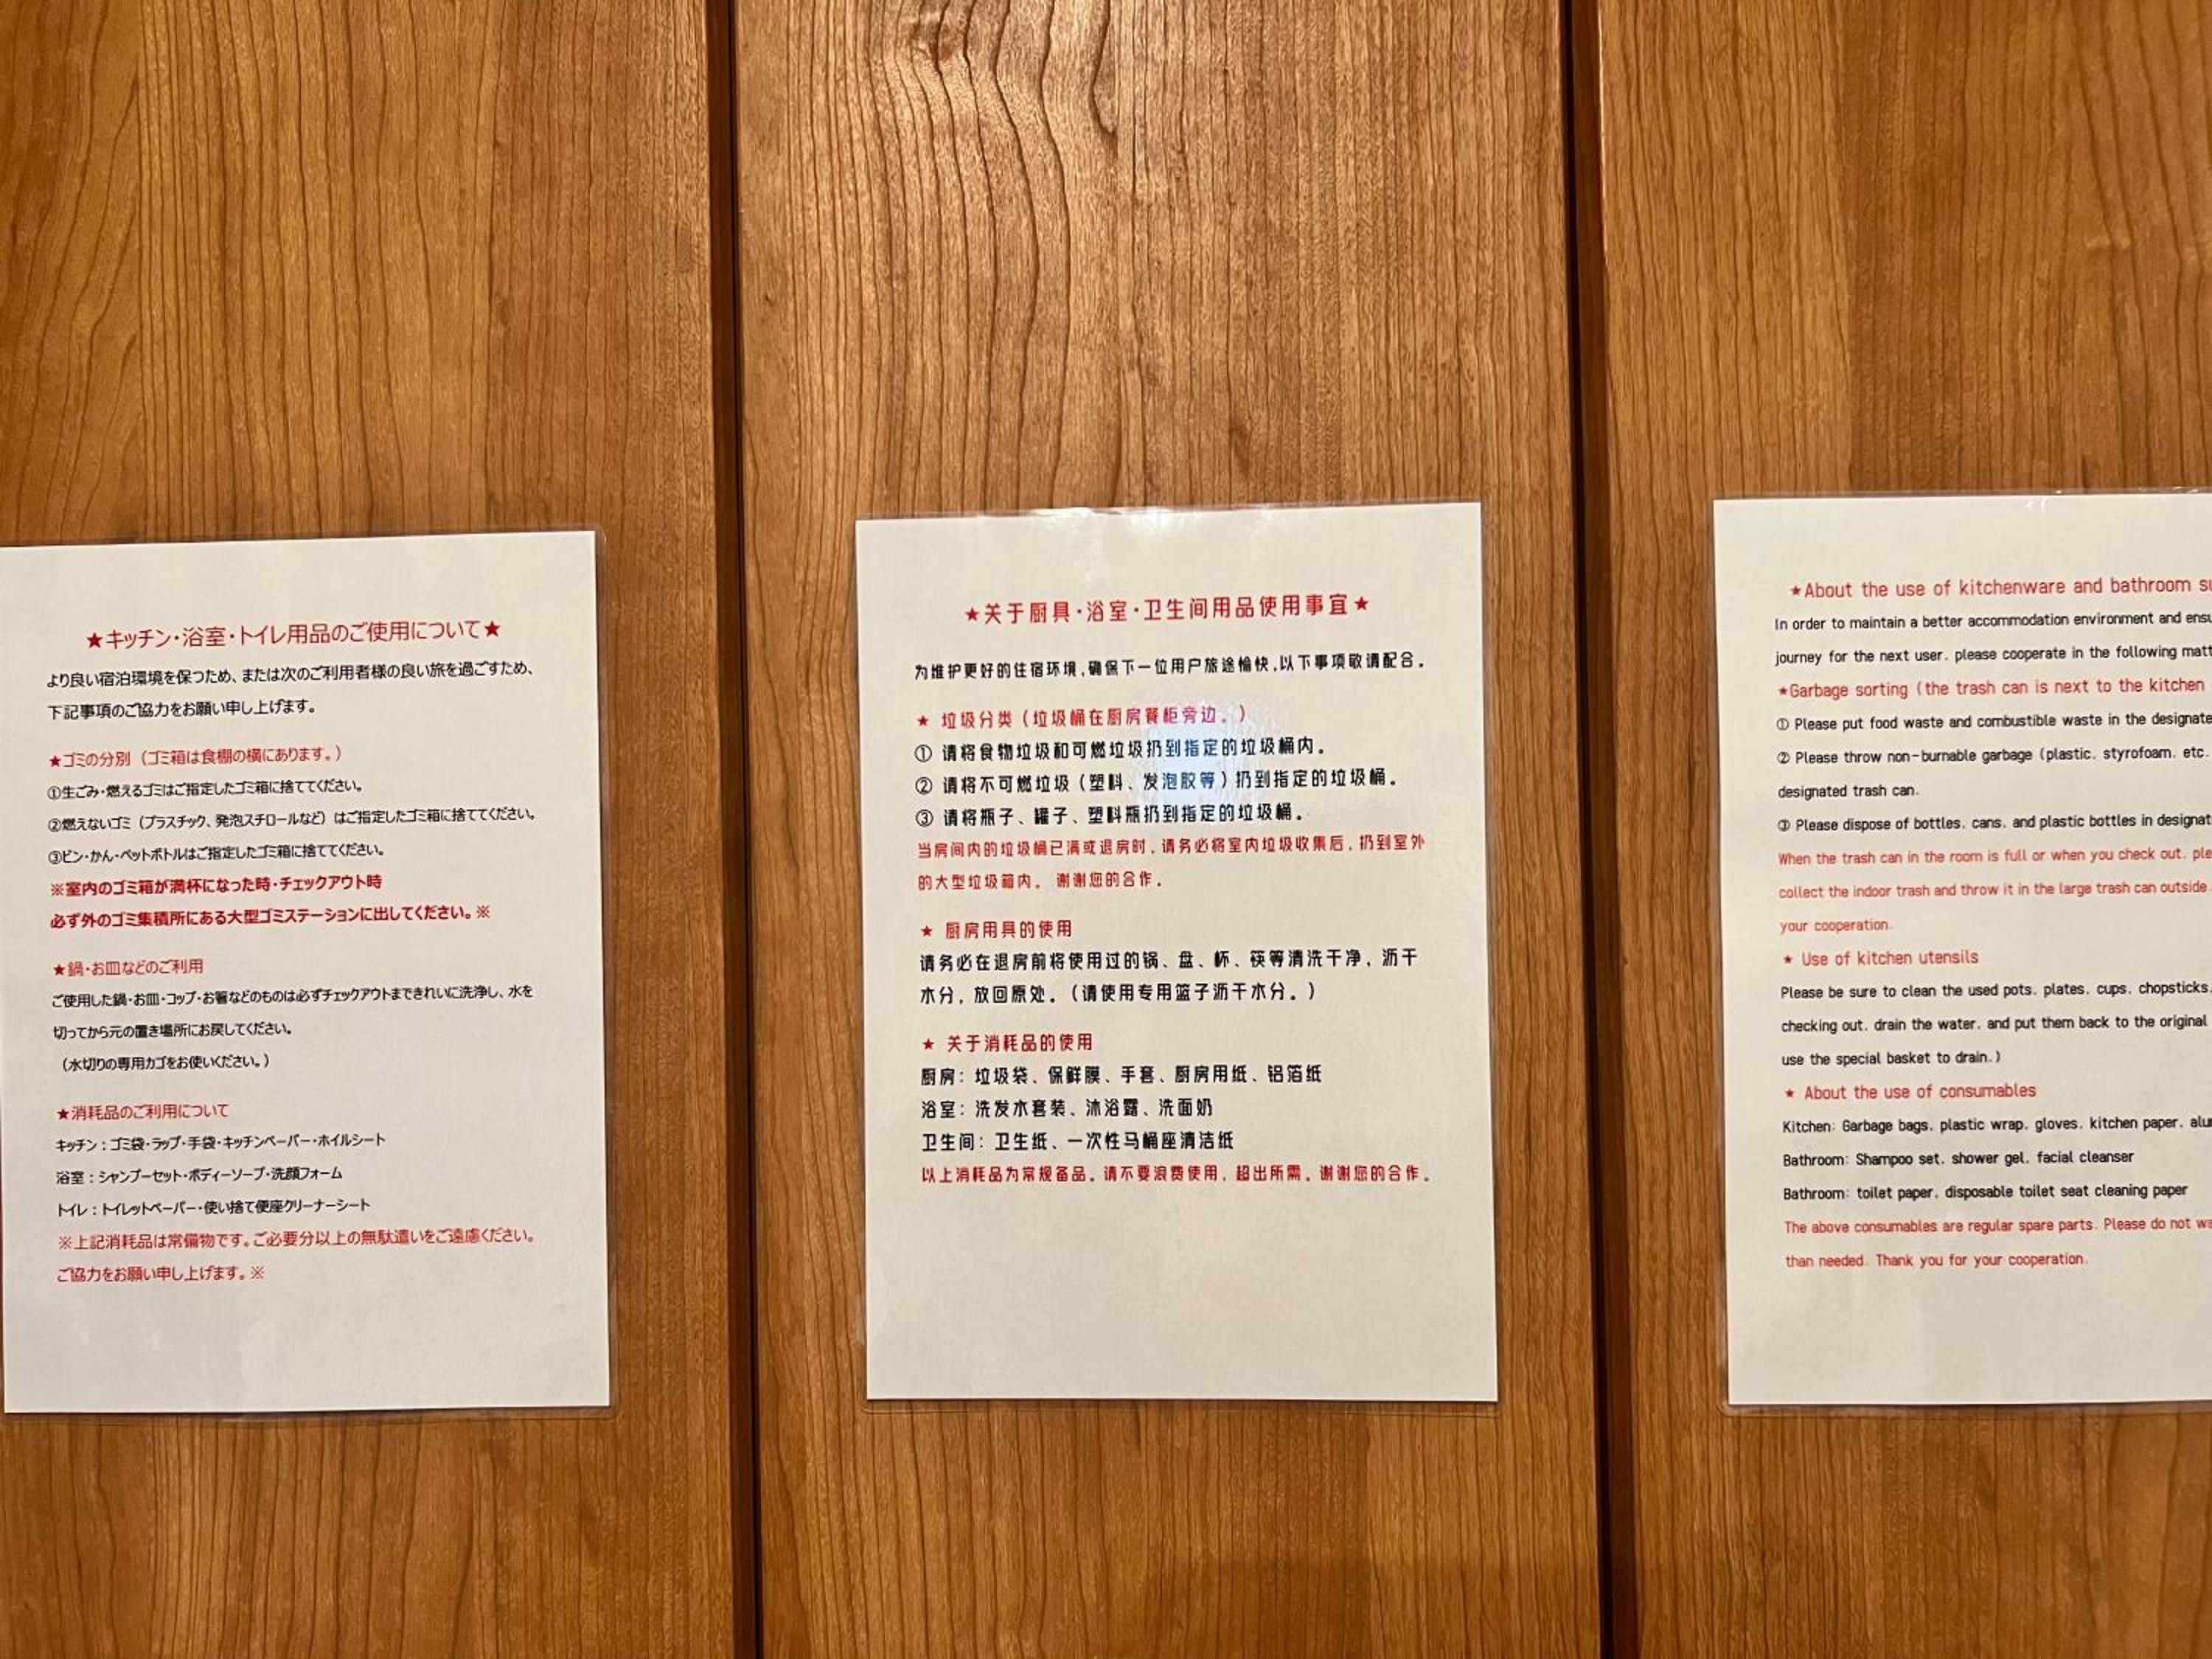 ★キッチン・浴室・トイレ用品のご使用について★
より良い宿泊環境を保つため、または次のご利用者様の良い旅を過ごすため、
下記事項のご協力をお願い申し上げます。
★ゴミの分別（ゴミ箱は食棚の横にあります。）
①生ごみ・燃えるゴミはご指定したゴミ箱に捨ててください。
②燃えないゴミ（プラスチック、発泡スチロールなど）はご指定したゴミ箱に捨ててください。
③ビン・かん・ペットボトルはご指定したゴミ箱に捨ててください。
※室内のゴミ箱が満杯になった時・チェックアウト時
必ず外のゴミ集積所にある大型ゴミステーションに出してください。※
★鍋・お皿などのご利用
ご使用した鍋・お皿・コップ・お箸などのものは必ずチェックアウトまできれいに洗浄し、水を
切ってから元の置き場所にお戻してください。
（水切りの専用カゴをお使いください。）
★消耗品のご利用について
キッチン：ゴミ袋・ラップ・手袋・キッチンペーパー・ホイルシート
浴室：シャンプーセット・ボディーソープ・洗顔フォーム
トイレ：トイレットペーパー・使い捨て便座クリーナーシート
※上記消耗品は常備物です。ご必要分以上の無駄遣いをご遠慮ください。
ご協力をお願い申し上げます。※
★关于厨具・浴室・卫生间用品使用事宜★
为维护更好的住宿环境,确保下一位用户旅途愉快,以下事项敬请配合。
★ 垃圾分类（垃圾桶在厨房餐柜旁边。）
① 请将食物垃圾和可燃垃圾扔到指定的垃圾桶内。
② 请将不可燃垃圾（塑料、发泡胶等）扔到指定的垃圾桶。
③ 请将瓶子、罐子、塑料瓶扔到指定的垃圾桶。
当房间内的垃圾桶已满或退房时，请务必将室内垃圾收集后，扔到室外
的大型垃圾箱内。 谢谢您的合作。
★ 厨房用具的使用
请务必在退房前将使用过的锅、盘、杯、筷等清洗干净，沥干
水分，放回原处。（请使用专用篮子沥干水分。）
★ 关于消耗品的使用
厨房：垃圾袋、保鲜膜、手套、厨房用纸、铝箔纸
浴室：洗发水套装、沐浴露、洗面奶
卫生间：卫生纸、一次性马桶座清洁纸
以上消耗品为常规备品。请不要浪费使用，超出所需。谢谢您的合作。
★About the use of kitchenware and bathroom
In order to maintain a better accommodation environment and
journey for the next user, please cooperate in the following
★Garbage sorting (the trash can is next to the kitchen
① Please put food waste and combustible waste in the
② Please throw non-burnable garbage (plastic, styrofoam, etc.
designated trash can.
③ Please dispose of bottles, cans, and plastic bottles in
When the trash can in the room is full or when you check out,
collect the indoor trash and throw it in the large trash can outside.
your cooperation.
★ Use of kitchen utensils
Please be sure to clean the used pots, plates, cups, chopsticks,
checking out, drain the water, and put them back to the original
use the special basket to drain.)
★ About the use of consumables
Kitchen: Garbage bags, plastic wrap, gloves, kitchen paper,
Bathroom: Shampoo set, shower gel, facial cleanser
Bathroom: toilet paper, disposable toilet seat cleaning paper
The above consumables are regular spare parts. Please do not
than needed. Thank you for your cooperation.